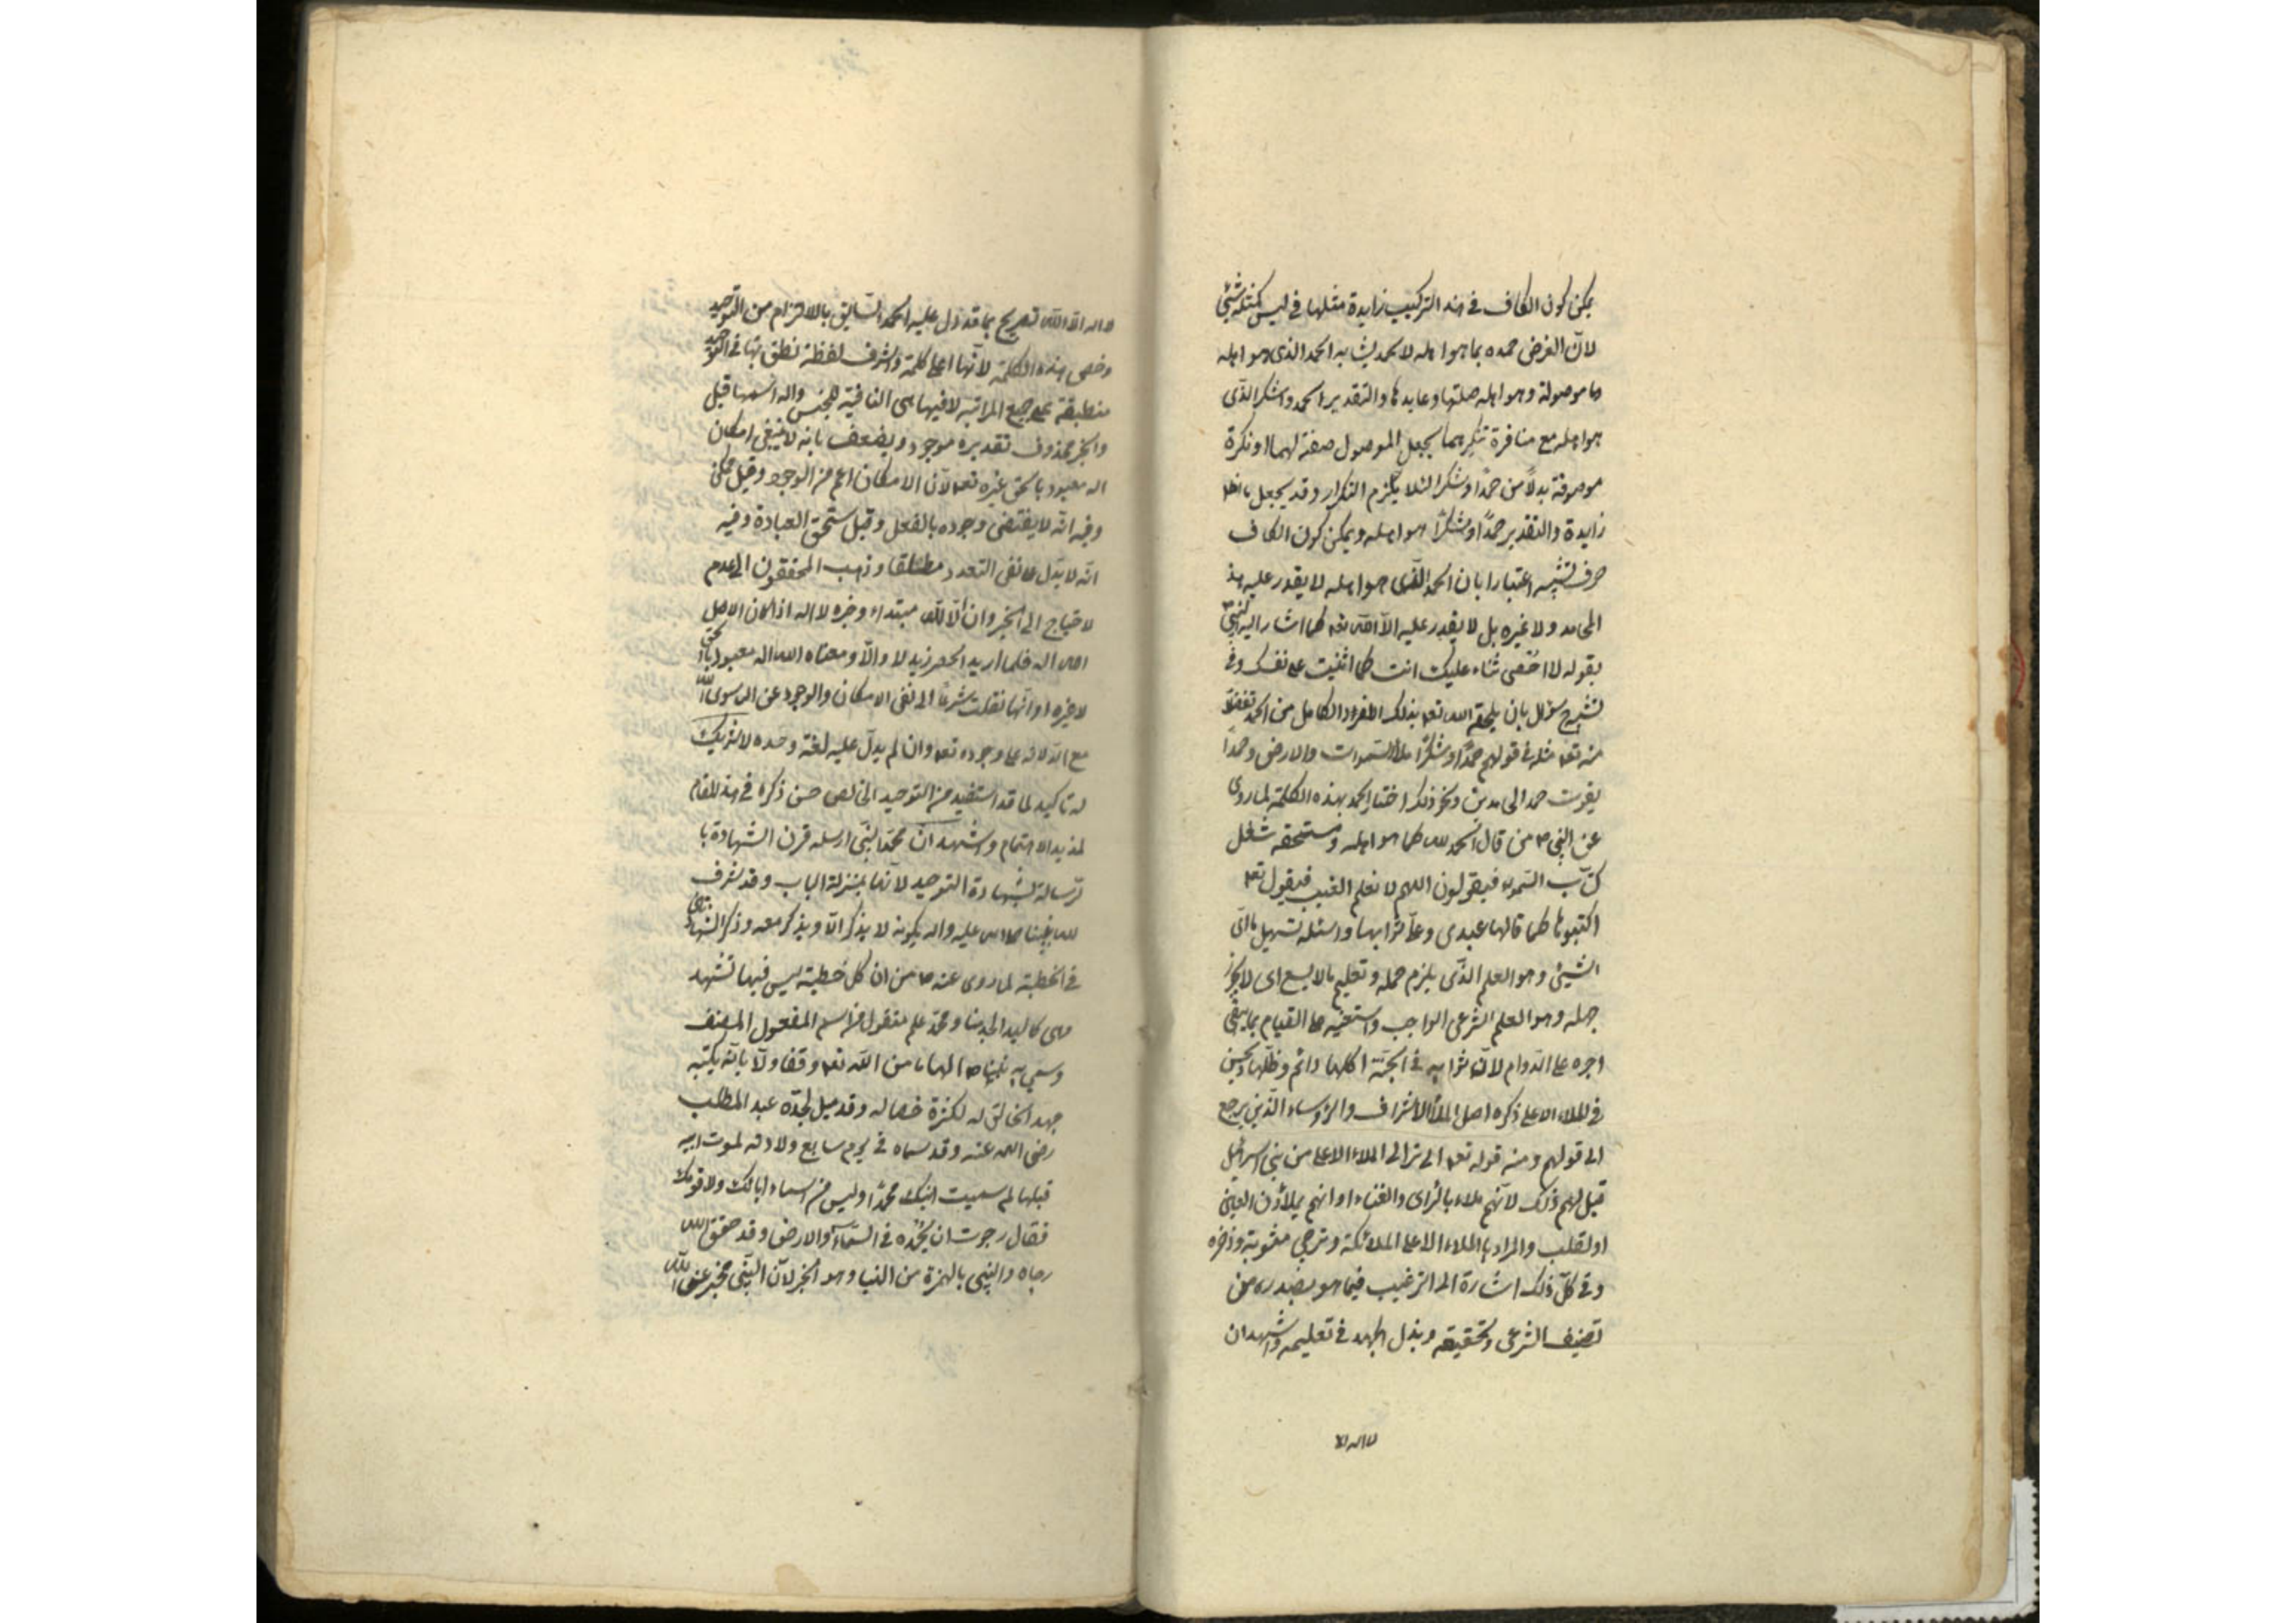 يمكن كون الكاف في هذا التركيب زايدة مثلها في ليس كمثله شيء
لانّ الغرض حمده بما هو اهله لا بحمد يشابه الحمد الذى هو اهله
وما موصولة وهو اهله صلتها وعايدها والتقدير الحمد والشكر الذّى
هو اهله مع منافرة تنكيرهما بجعل الموصول صفة لهما او نكرة
موصوفة بدلاً من حمدًا وشكرا لئلا يلزم التكرار وقد يجعل ما
زايدة والتقدير حمدًا وشكرًا هو اهله ويمكن كون الكاف
حرف تشبيه اعتبارا بان الحمد الّذى هو اهله لا يقدر عليه هذ
الحامد ولا غيره بل لا يقدر عليه الاّ الله تعه كما اشار اليه النبىّ ص
بقوله لا احصى ثناء عليك انت كما اثنيت على نفسك وفى
الشرح سؤال بان يلحقه الله تعه بذلك الفرد الكامل من الحمد تفضلا
منه تعه مثله في قولهم حمدًا وشكرًا ملأ السّموات والارض وحمدًا
يفوت حمد الحامدين ونحو ذلك اختار الحمد بهذه الكلمة لما روى
عن النبي ص من قال الحمد لله كما هو اهله ومستحقه شغل
كتّاب السّموء فيقولون اللهم لا نعلم الغيب فيقول تعه
اكتبوها كما قالها عبدى وعلىّ ثوابها واسئله تسهيل ما اى
الشيئ وهو العلم الذّى يلزم حمله وتعليم ما لا يسع اى لا يجوز
جهله وهو العلم الشرعى الواجب واستعينه على القيام بما يبقى
اجره على الدّوام لانّ ثوابه فى الجنّة اكلها دائم وظلّها ويحسن
فى الملاء الاعلى ذكره اصل الملأ الاشراف والرّوساء الّذين يرجع
الى قولهم ومنه قوله تعه الم تر الى الملاء الاعلى من بنى اسرائيل
قيل لهم ذلك لانّهم ملاء بالراى والغناء او انهم يملأون العين
او القلب والمراد بالملاء الاعلى الملائكة وترجى مثوبته وذخره
وفى كلّ ذلك اشارة الى الترغيب فيما هو بصدده من
تصنيف الشرعى وتحقيقه وبذل الجهد فى تعليمه واشهد ان
لا اله الا
لا اله الاّ الله تصريح بما قد دل عليه الحمد السّابق بالالتزام من التوحيد
وخص هذه الكلمة لانّها اعلى كلمة واشرف لفظة نطق بها فى التوحيد
منطبقة على جميع المراتب لا فيها هى النافية للجنس واله اسمها قيل
والخبر محذوف تقديره موجود ويضعف بانه لا ينفى امكان
اله معبود بالحق غيره تعه لانّ الامكان اعم من الوجود وقيل ممكن
وفيه انّه لا يقتضى وجوده بالفعل وقيل مستحق العبادة وفيه
انّه لا يدّل على نفى التعدد مطلقا وذهب المحققون الى عدم
الاحتياج الى الخبر وان الاّ الله مبتداء وخبره لا اله اذ كان الاصل
الله اله فلما اريد الحصر زيد لا والاّ ومعناه الله اله معبود بالحق
لا غيره او انّها نقلت شرعاً الى نفى الامكان والوجود عن اله سوى الله
مع الدّلالة على وجوده تعه وان لم يدلّ عليه لغة وحده لا شريك
له تاكيد لما قد استفيد من التوحيد الخالص حسن ذكره في هذا المقام
لمزيد الاهتمام واشهد انّ محمّدا نبىّ ارسله قرن الشهادة با
لرّسالة بشهادة التوحيد لانّها بمنزلة الباب وقد شرف
الله نبيّنا صلى الله عليه واله بكونه لا يذكر الاّ ويذكر معه وذكر الشهادتين
في الخطبة لما روى عنه ص من ان كل خطبة ليس فيها تشهد
فهى كاليد الجذماء ومحمّد علم منقول من اسم المفعول المضعف
وسمى به نبيّنا ص الهاما من الله تعه وتفاولاً بانّه يكثر
حمد الخالق له لكثرة خصاله وقد قيل لجدّه عبد المطلب
رضى الله عنه وقد سماه في يوم سابع ولادته لموت ابيه
قبلها لم سميت ابنك محمّدًا وليس من اسماء ابائك ولا قومك
فقال رجوت ان يُحمده في السّماء والارض وقد حقق الله
رجاه والنبى بالهمزة من النبا وهو الخبر لانّ النبّى مخبر عن الله